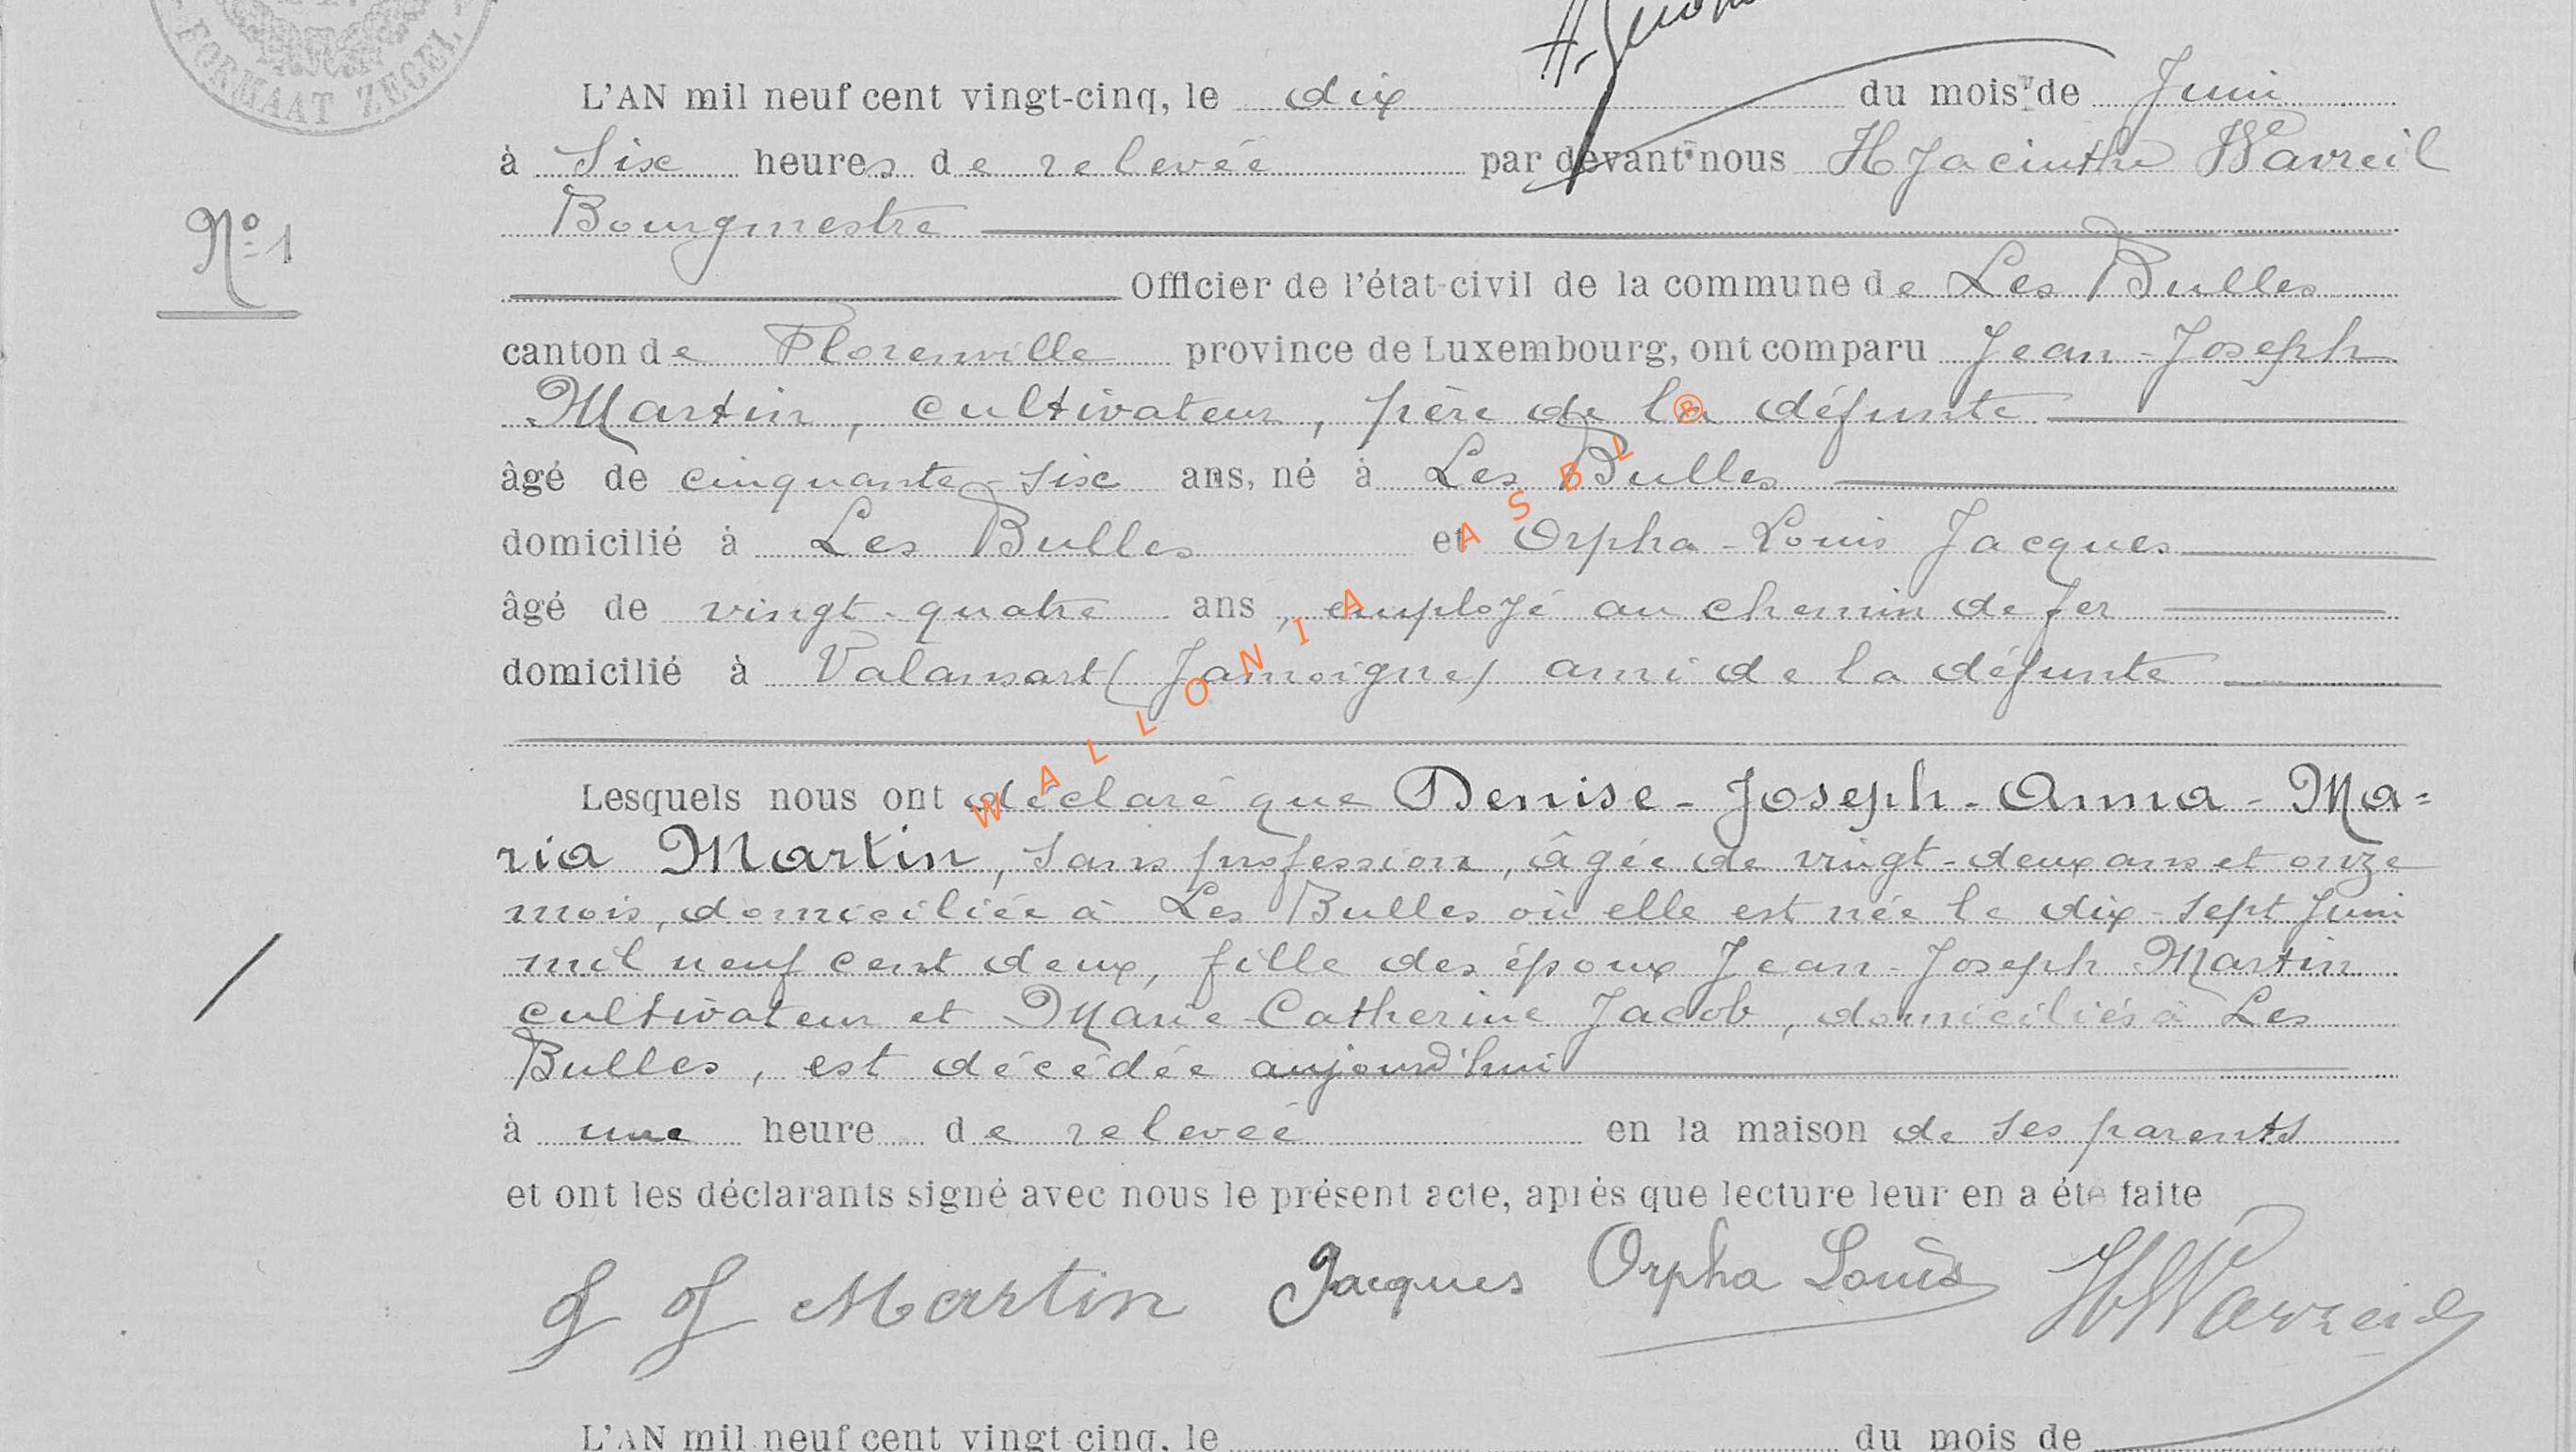 FORMAAT ZEGEL
L'AN mil neuf cent vingt-cinq, le dix du mois de Juin
à Six heures de relevée par devant nous HJacinthe Wavreil
Bourgmestre
Nº 1
Officier de l'état-civil de la commune de Les Bulles
canton de Florenville province de Luxembourg, ont comparu Jean-Joseph
Martin, cultivateur, père de la défunte
âgé de cinquante-Six ans, né à Les Bulles
domicilié à Les Bulles et Orpha-Louis Jacques
âgé de vingt-quatre ans, employé au chemin de fer
domicilié à Valansart (Jamoigne) ami de la défunte
WALLONIA ASBL ®
Lesquels nous ont déclaré que Denise-Joseph-Anna-Ma=
ria Martin, Sans profession, âgée de vingt-deux ans et onze
mois, domiciliée à Les Bulles où elle est née le dix-sept Juin
mil neuf cent deux, fille des époux Jean-Joseph Martin
cultivateur et Marie-Catherine Jacob, domiciliés à Les
Bulles, est décédée aujourd'hui
à une heure de relevée en la maison de ses parents
et ont les déclarants signé avec nous le présent acte, après que lecture leur en a été faite
J J Martin Jacques Orpha Louis HWavreil
L'AN mil neuf cent vingt-cinq, le du mois de